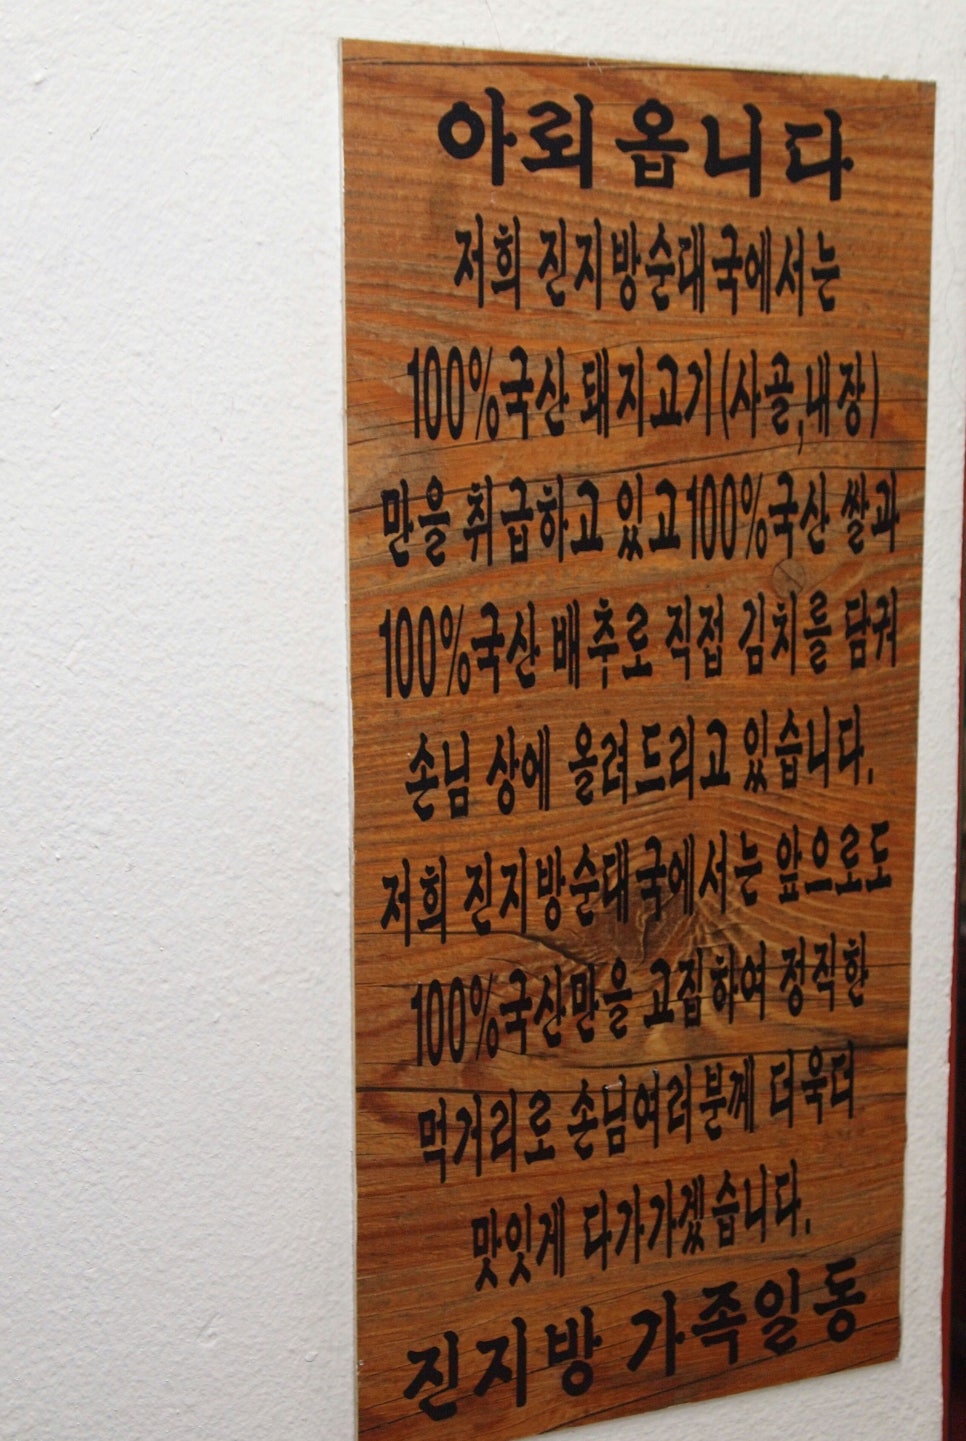 아뢰옵니다
저희 진지방순대국에서는
100%국산 돼지고기(사골,내장)
만을 취급하고 있고 100%국산 쌀과
100%국산 배추로 직접 김치를 담궈
손님 상에 올려드리고 있습니다.
저희 진지방순대국에서는 앞으로도
100%국산만을 고집하여 정직한
먹거리로 손님여러분께 더욱더
맛잇게 다가가겠습니다.
진지방 가족일동